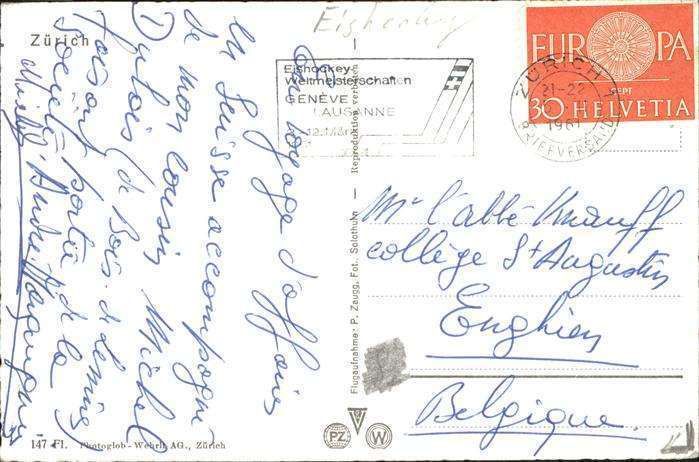 Eishockey
Zürich
En voyage d'affaires
en Suisse accompagné
de mon cousin Michel
Dubois (de Bois de Lessines
Société
de la
EUROPA
SEPT
30 HELVETIA
ZÜRICH 1
21-22
1961
BRIEFVERSAND
Eishockey-
Weltmeisterschaften
GENÈVE
LAUSANNE
Reproduktion verboten
Flugaufnahme: P. Zaugg, Fot., Solothurn
Mr l'abbé Knauff
collège St Augustin
Enghien
Belgique.
PZ W
147 Fl. Photoglob-Wehrli AG., Zürich